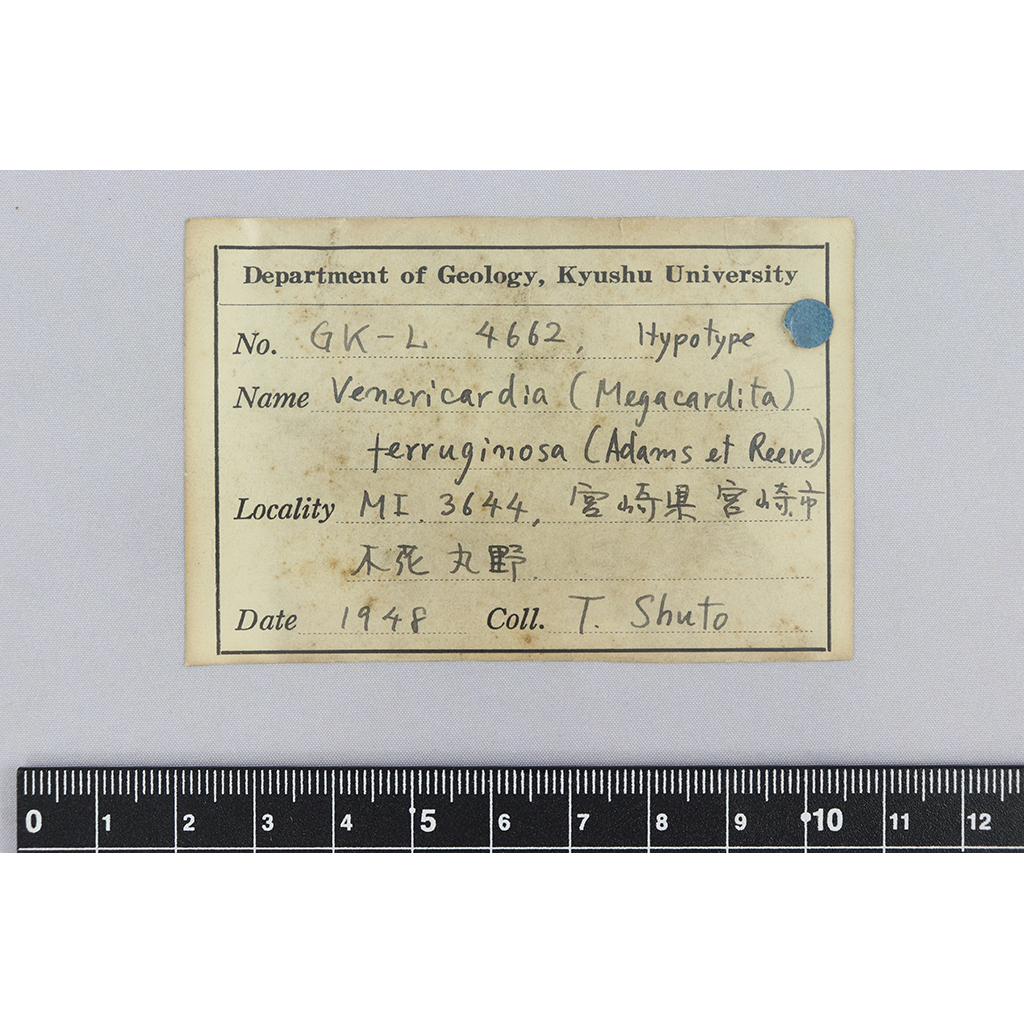 Department of Geology, Kyushu University
No. GK-L 4662, Hypotype
Name Venericardia (Megacardita)
ferruginosa (Adams et Reeve)
Locality MI. 3644, 宮崎県宮崎市
丸野
Date 1948 Coll. T. Shuto
0 1 2 3 4 5 6 7 8 9 10 11 12